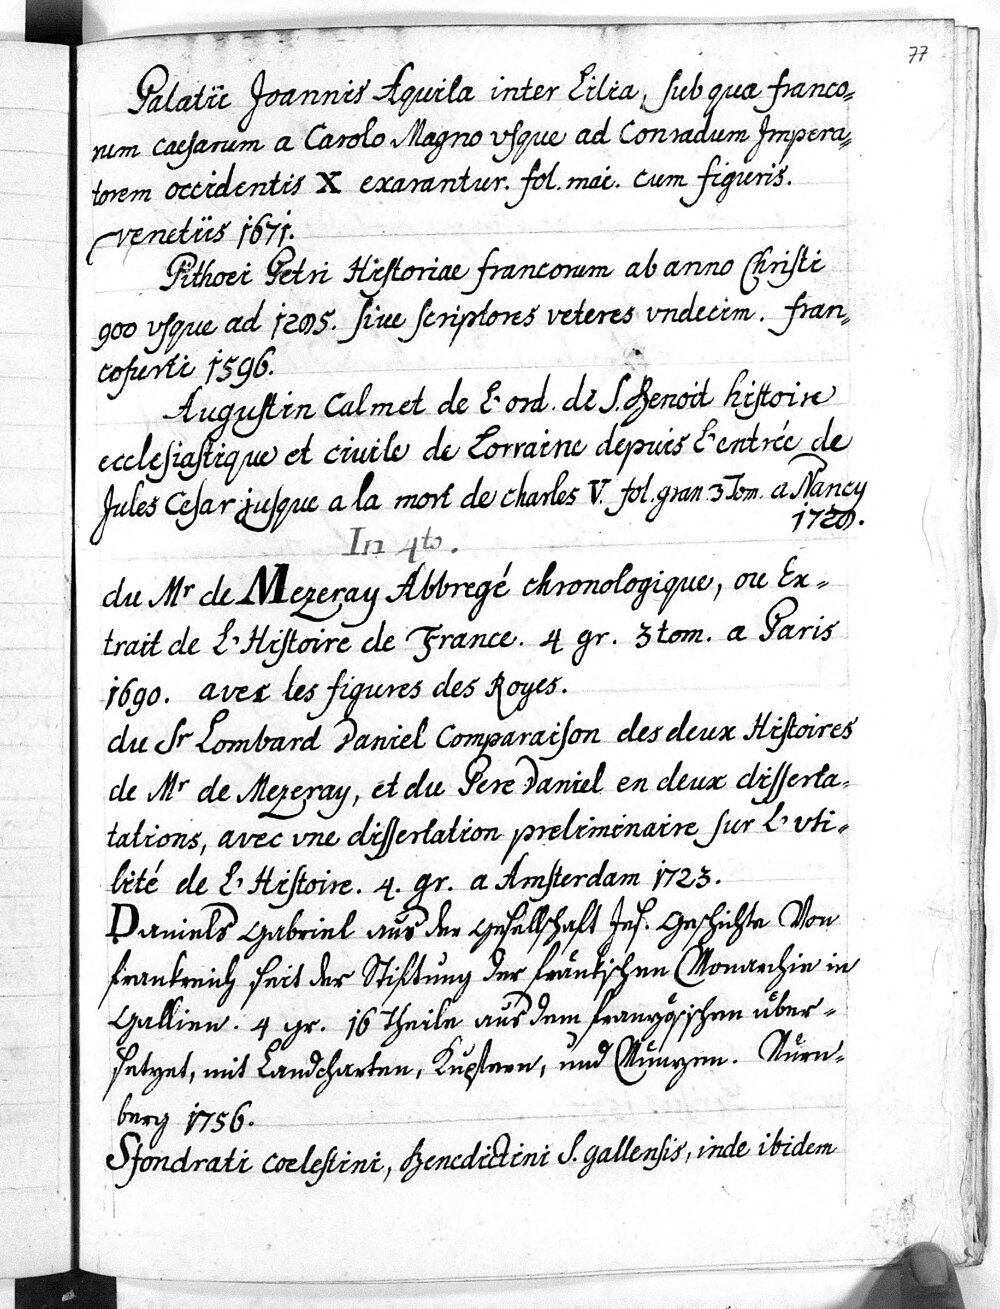 77
Palatii Joannis Aquila inter Lilia, sub qua franco„
rum caesarum a Carolo Magno usque ad Conradum Impera„
torem occidentis X exarantur. fol. mai. cum figuris.
venetiis 1671.
Pithoei Petri Historiae francorum ab anno Christi
900 vsque ad 1285. siue scriptores veteres vndecim. fran„
cofurti 1596.
Augustin Calmet de L'ord. de S. Benoit histoire
ecclesiastique et civile de Lorraine depuis L'entrée de
Jules Cesar jusque a la mort de charles V. fol. gran 3 Tom. a Nancy
1728.
In 4to.
du Mr de Mezeray Abbregé chronologique, ou Ex„
trait de L'Histoire de France. 4 gr. 3 tom. a Paris
1690. avec les figures des Royes.
du Sr Lombard Daniel Comparaison des deux Histoires
de Mr de Mezeray, et du Pere Daniel en deux disserta„
tations, avec vne dissertation preliminaire sur L'vti„
lité de L'Histoire. 4. gr. a Amsterdam 1723.
Daniels Gabriel aus der Gesellschaft Jes. Geschichte Von
frankreich seit der Stiftung der fränkischen Monarchie in
Gallien. 4 gr. 16 Theile aus dem französischen über„
setzet, mit Landcharten, Kupfern, und Münzen. Nürn„
berg 1756.
Sfondrati coelestini, Benedictini S. gallensis, inde ibidem